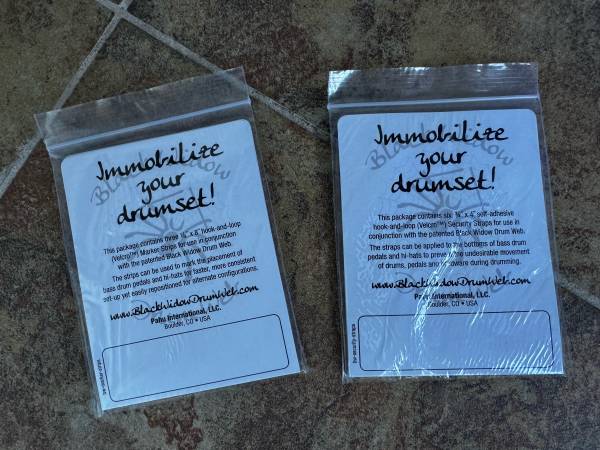 Immobilize
your
drumset!
Black Widow
This package contains three ¾" x 8" hook-and-loop
(Velcro™) Marker Strips for use in conjunction
with the patented Black Widow Drum Web.
The strips can be used to mark the placement of
bass drum pedals and hi-hats for faster, more consistent
set-up yet easily repositioned for alternate configurations.
www.BlackWidowDrumWeb.com
Pahu International, LLC.
Boulder, CO • USA
Immobilize
your
drumset!
Black Widow
This package contains six ¾" x 4" self-adhesive
hook-and-loop (Velcro™) Security Straps for use in
conjunction with the patented Black Widow Drum Web.
The straps can be applied to the bottoms of bass drum
pedals and hi-hats to prevent the undesirable movement
of drums, pedals and hardware during drumming.
www.BlackWidowDrumWeb.com
Pahu International, LLC.
Boulder, CO • USA